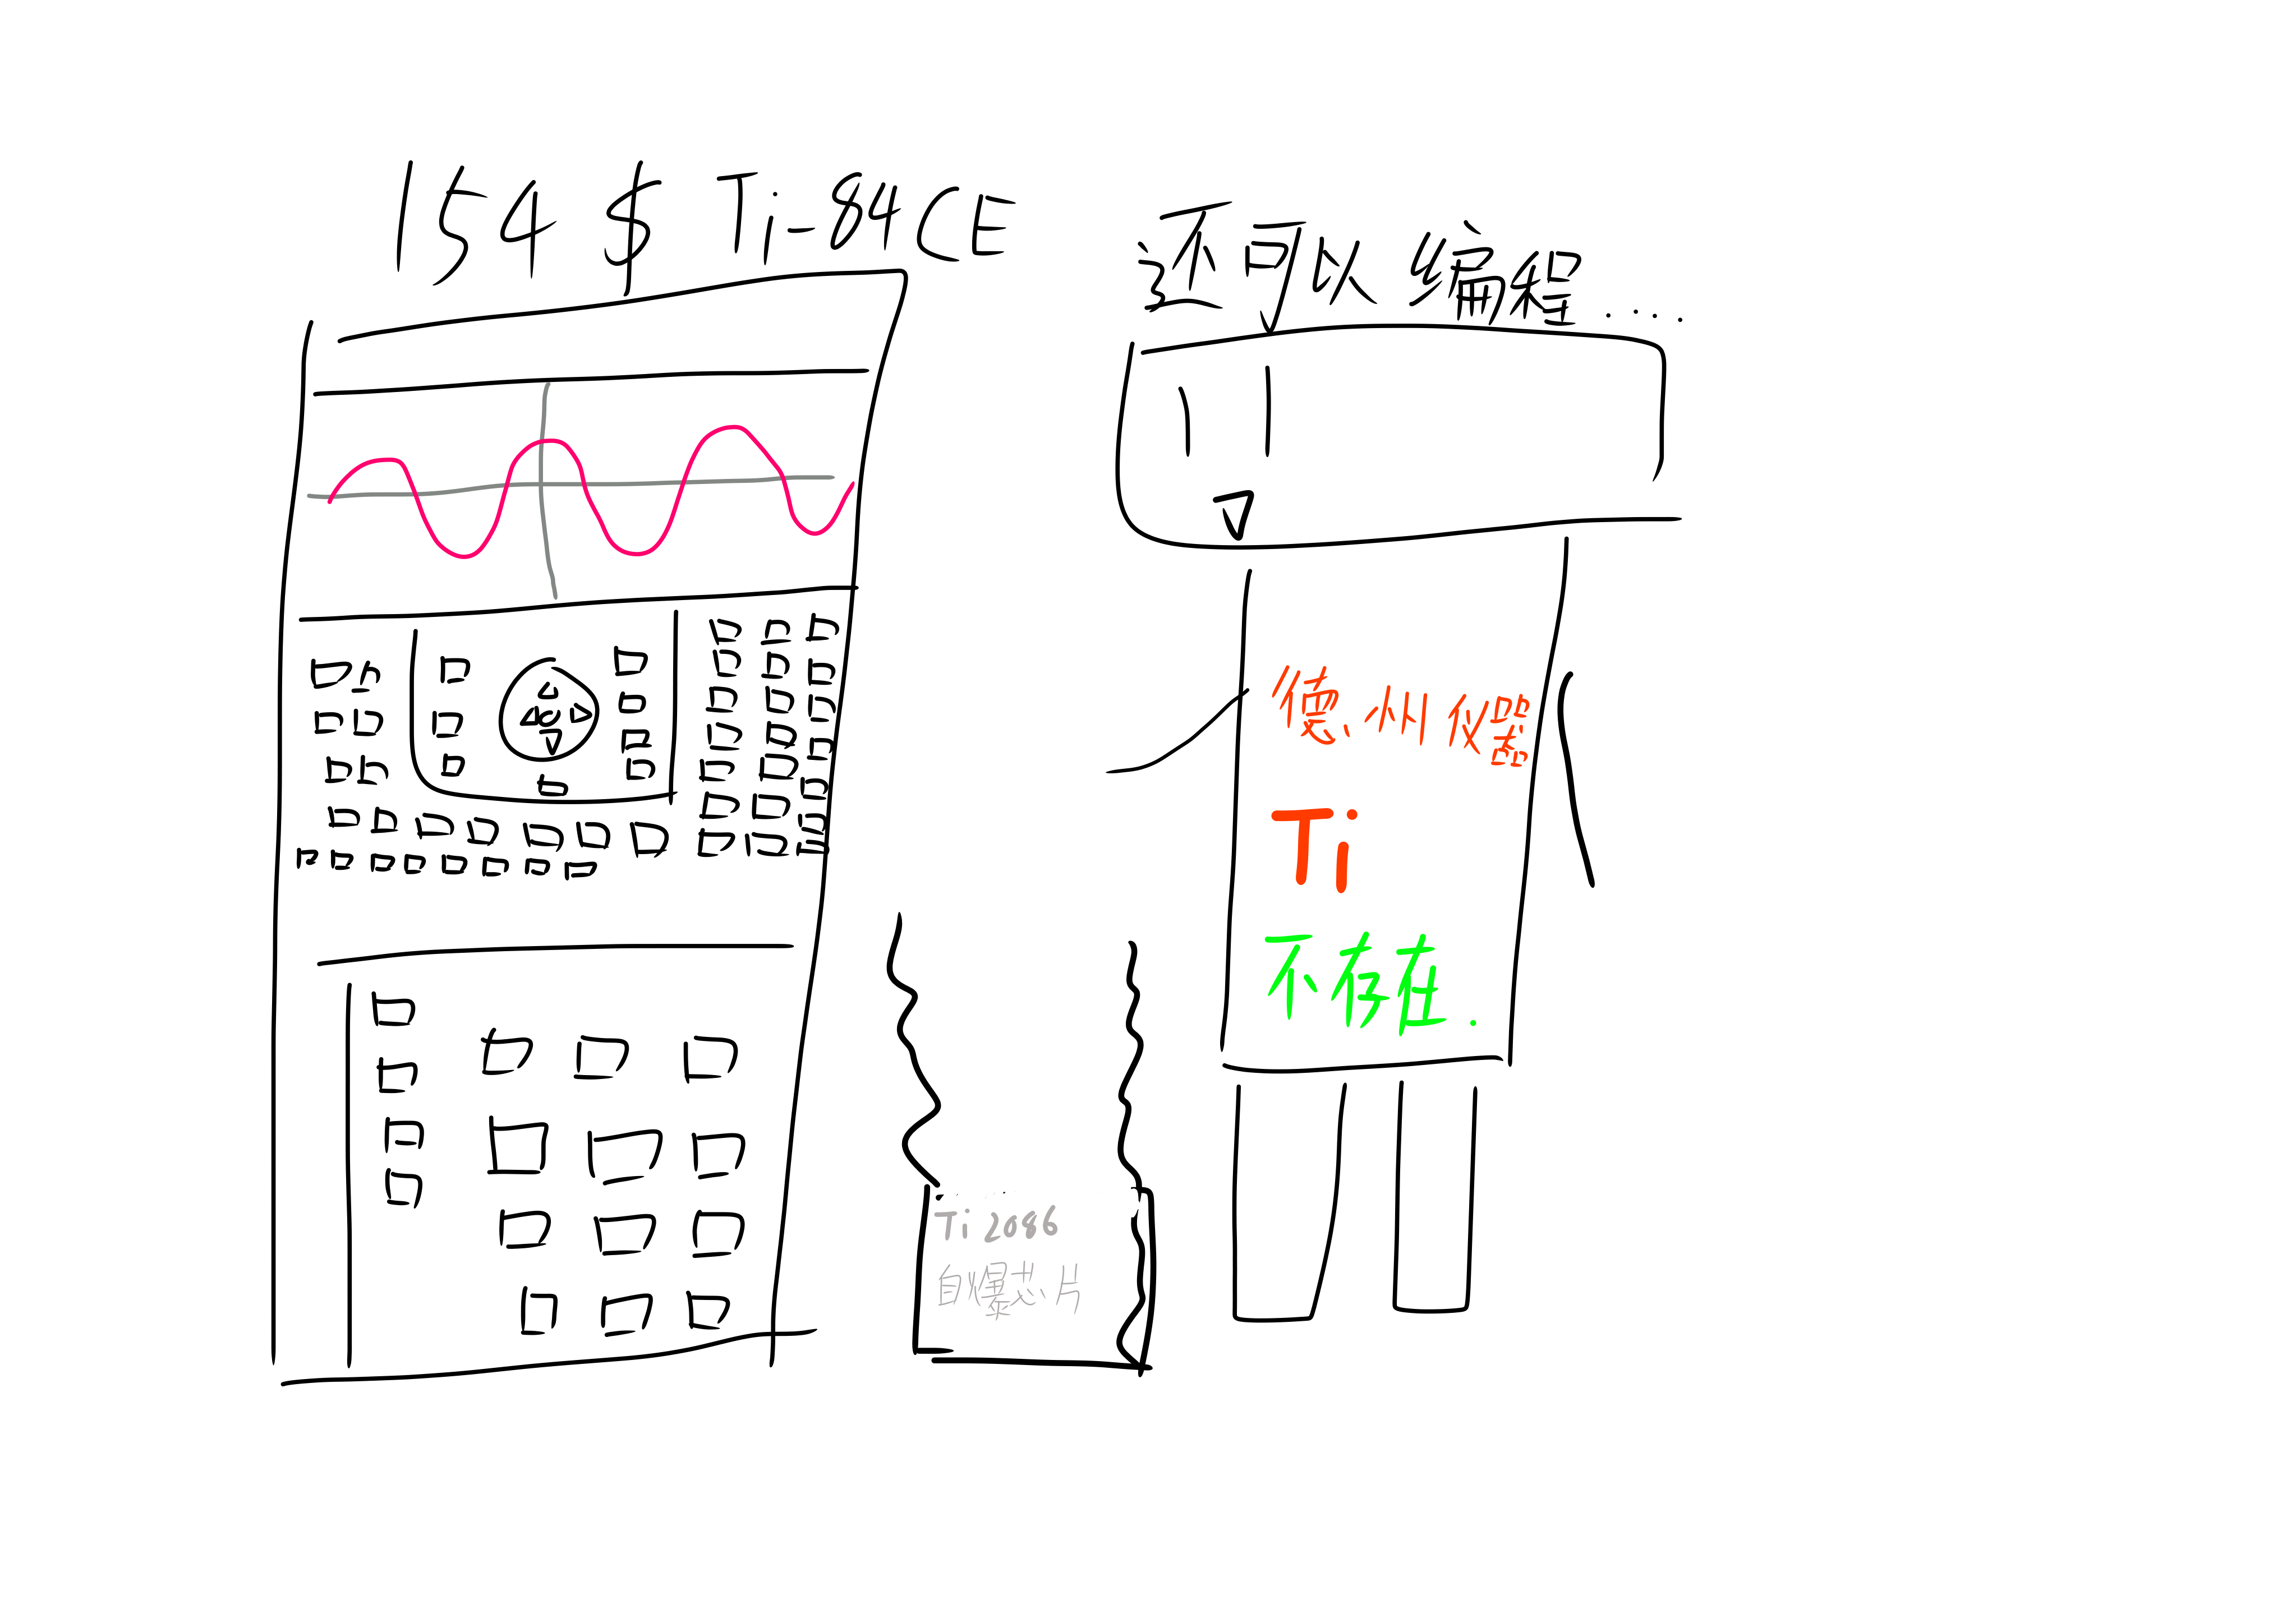 154 $ Ti-84CE
还可以编程....
德州仪器
Ti
不存在.
Ti 2086
自爆芯片